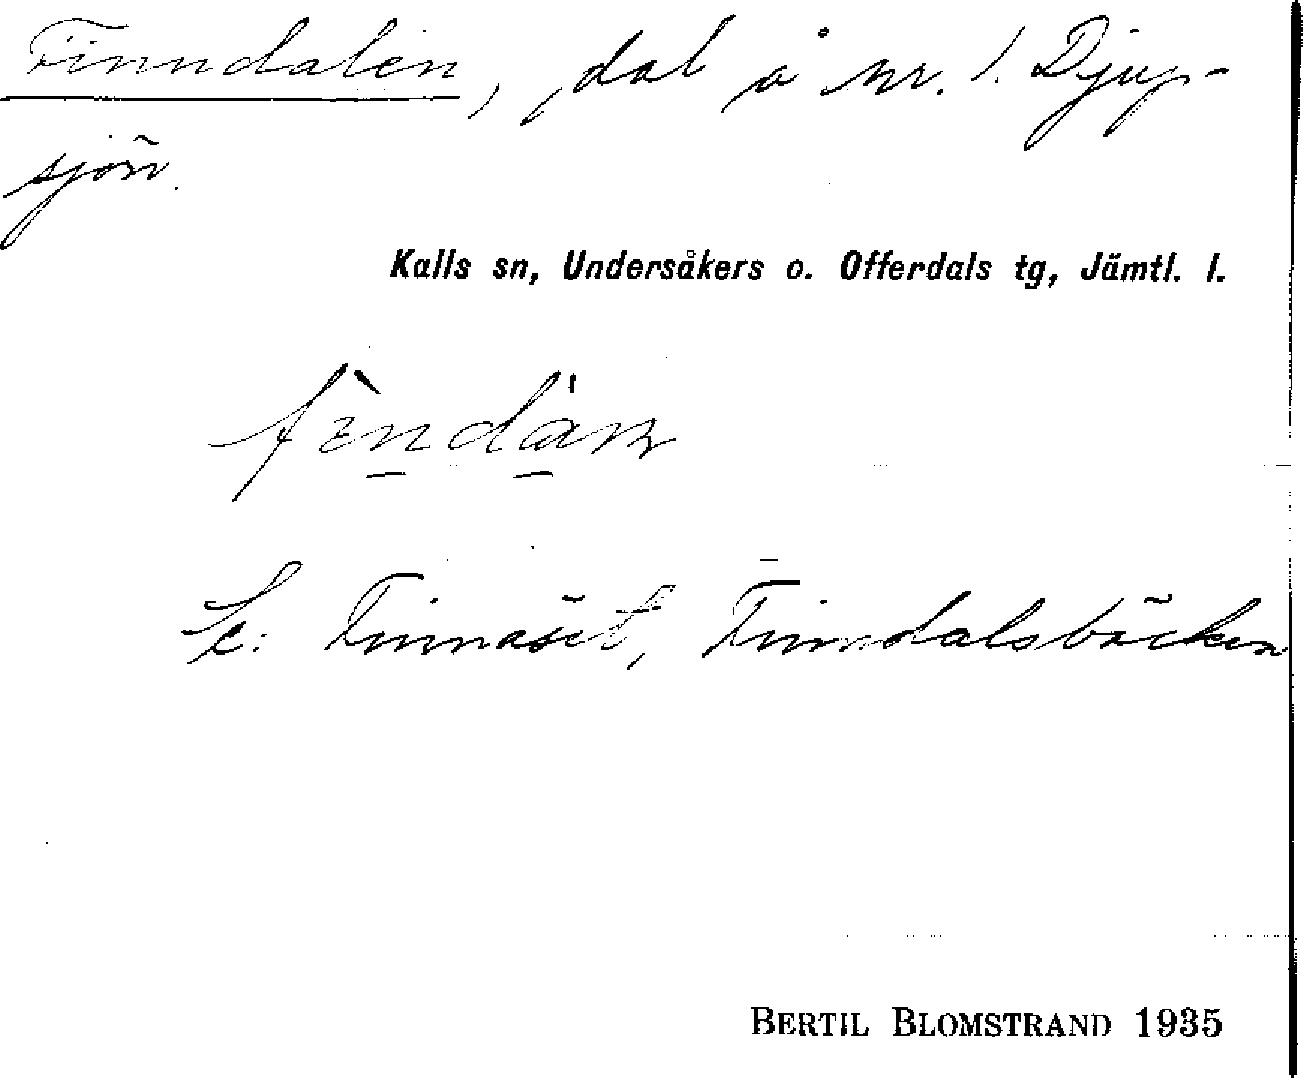 Finndalen, dal å nr. 1 Djup-
sjön.
Kalls sn, Undersåkers o. Offerdals tg, Jämtl. l.
Finnäset, Finndalsbäcken
BERTIL BLOMSTRAND 1935